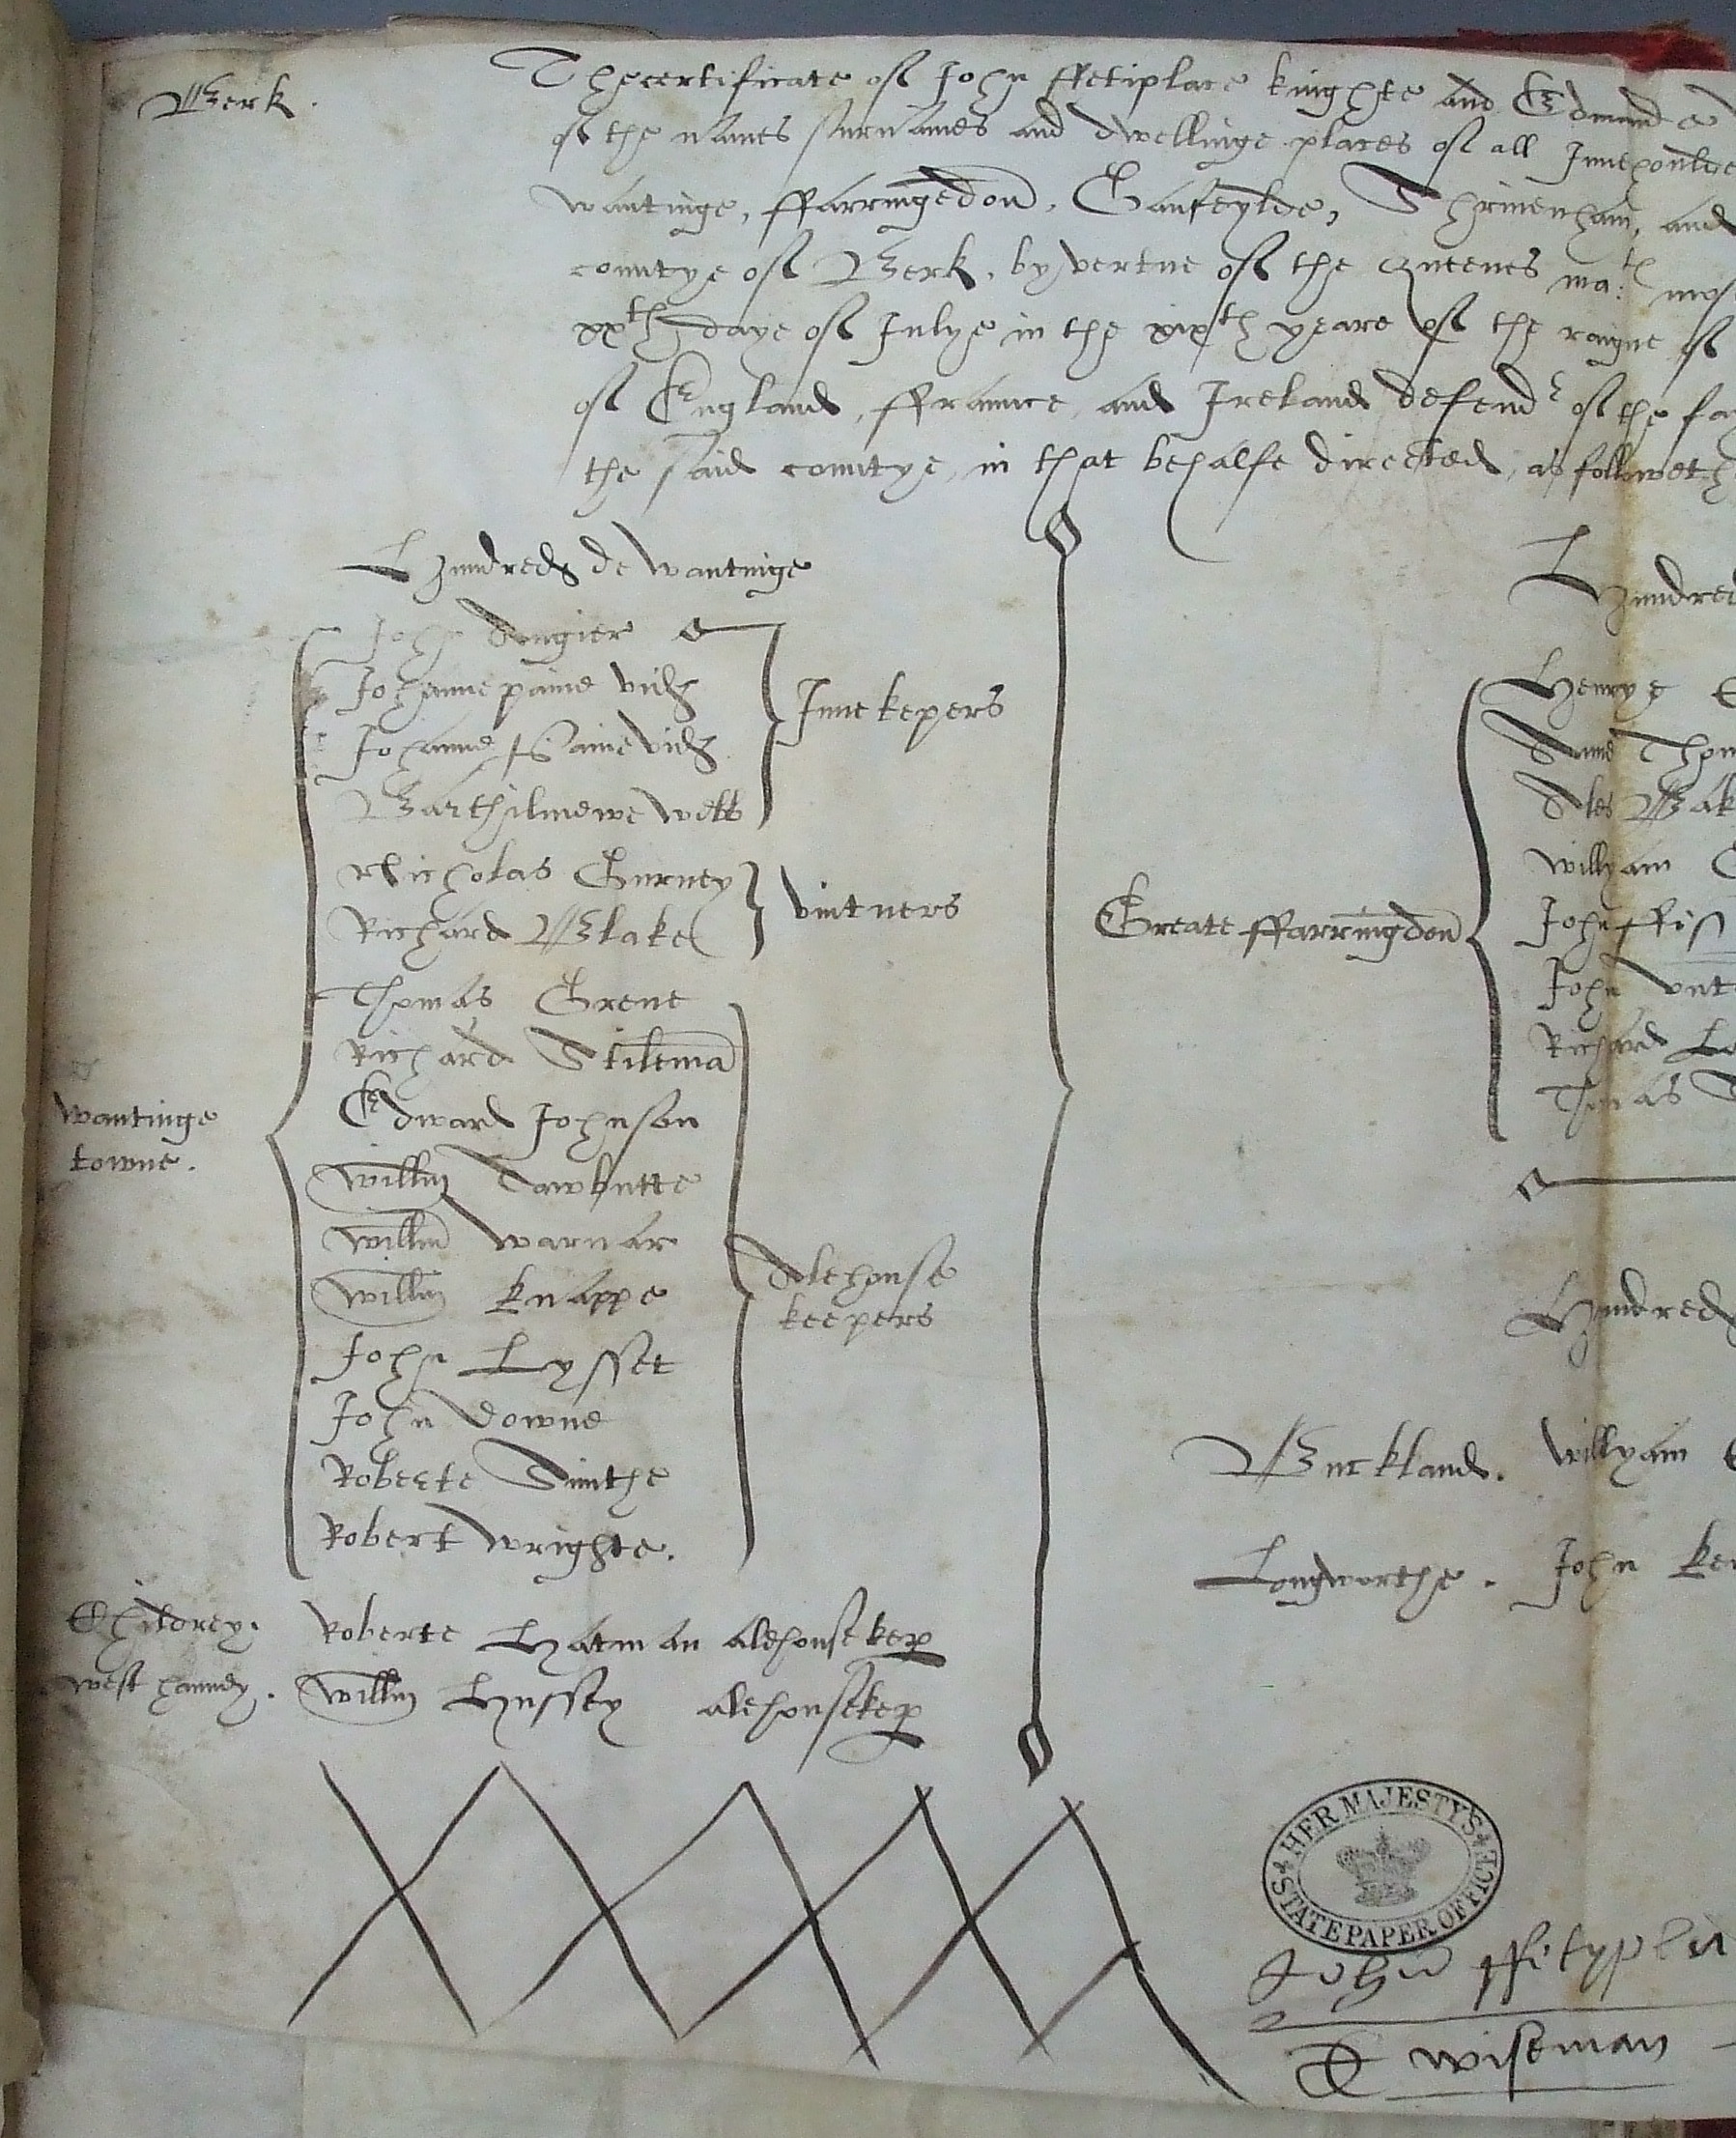 Berk.
Thecertificate of John ffetiplace knighte and Edmund
of the names surnames and dwellinge places of all Inneholde
wantinge, ffarringedon, Ganfeylde, Shrivenham, and
countye of Berk, by vertue of the Queenes ma:th mos
xxth daye of Julye in the xixth yeare of the raigne of
of England, ffraunce, and Ireland defend of the fa
the said countye, in that behalfe directed, as followeth
Hundred de Wantinge
John Augier
Johanne paine vid
Johanne vid
Barthilmewe Webb
Innekepers
Nicholas Gurney
Richard Blake
vintners
Thomas Grene
Richard Stilema
Edward Johnson
Willm Tawbutte
Willm Warnar
Willm Knappe
John Lysset
John Downe
Roberte Smithe
Robert Wrighte.
Alehouse
keepers
Wantinge
towne.
Childrey. Roberte Hatman alehousekep
West hanney. Willm Hussey alehousekep
Hundred
Great ffarringdon
Henrye
Anne Thom
Ales Bak
Willyam
John ffis
John
Richard
Thomas
Hundred
Buckland. Willyam
Longworthe. John Ke
HER MAJESTY'S STATE PAPER OFFICE
John ffetypla
E wiseman